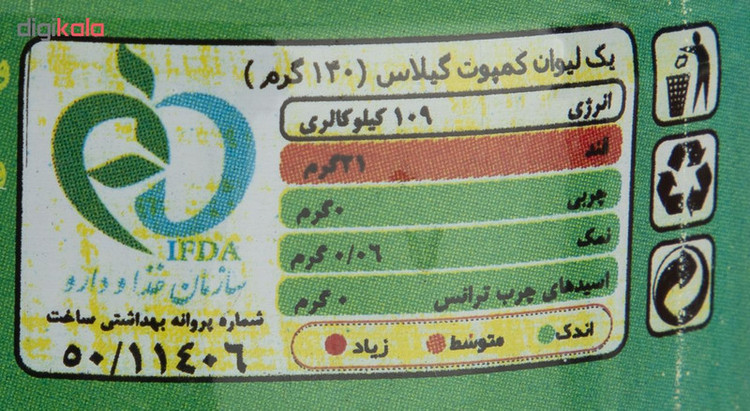 digikala
یک لیوان کمپوت گیلاس (۱۴۰ گرم)
انرژی ۱۰۹ کیلوکالری
قند ۲۱ گرم
چربی ۰ گرم
نمک ۰/۰۶ گرم
اسیدهای چرب ترانس ۰ گرم
اندک متوسط زیاد
IFDA
سازمان غذا و دارو
شماره پروانه بهداشتی ساخت
۵۰/۱۱٤۰۶